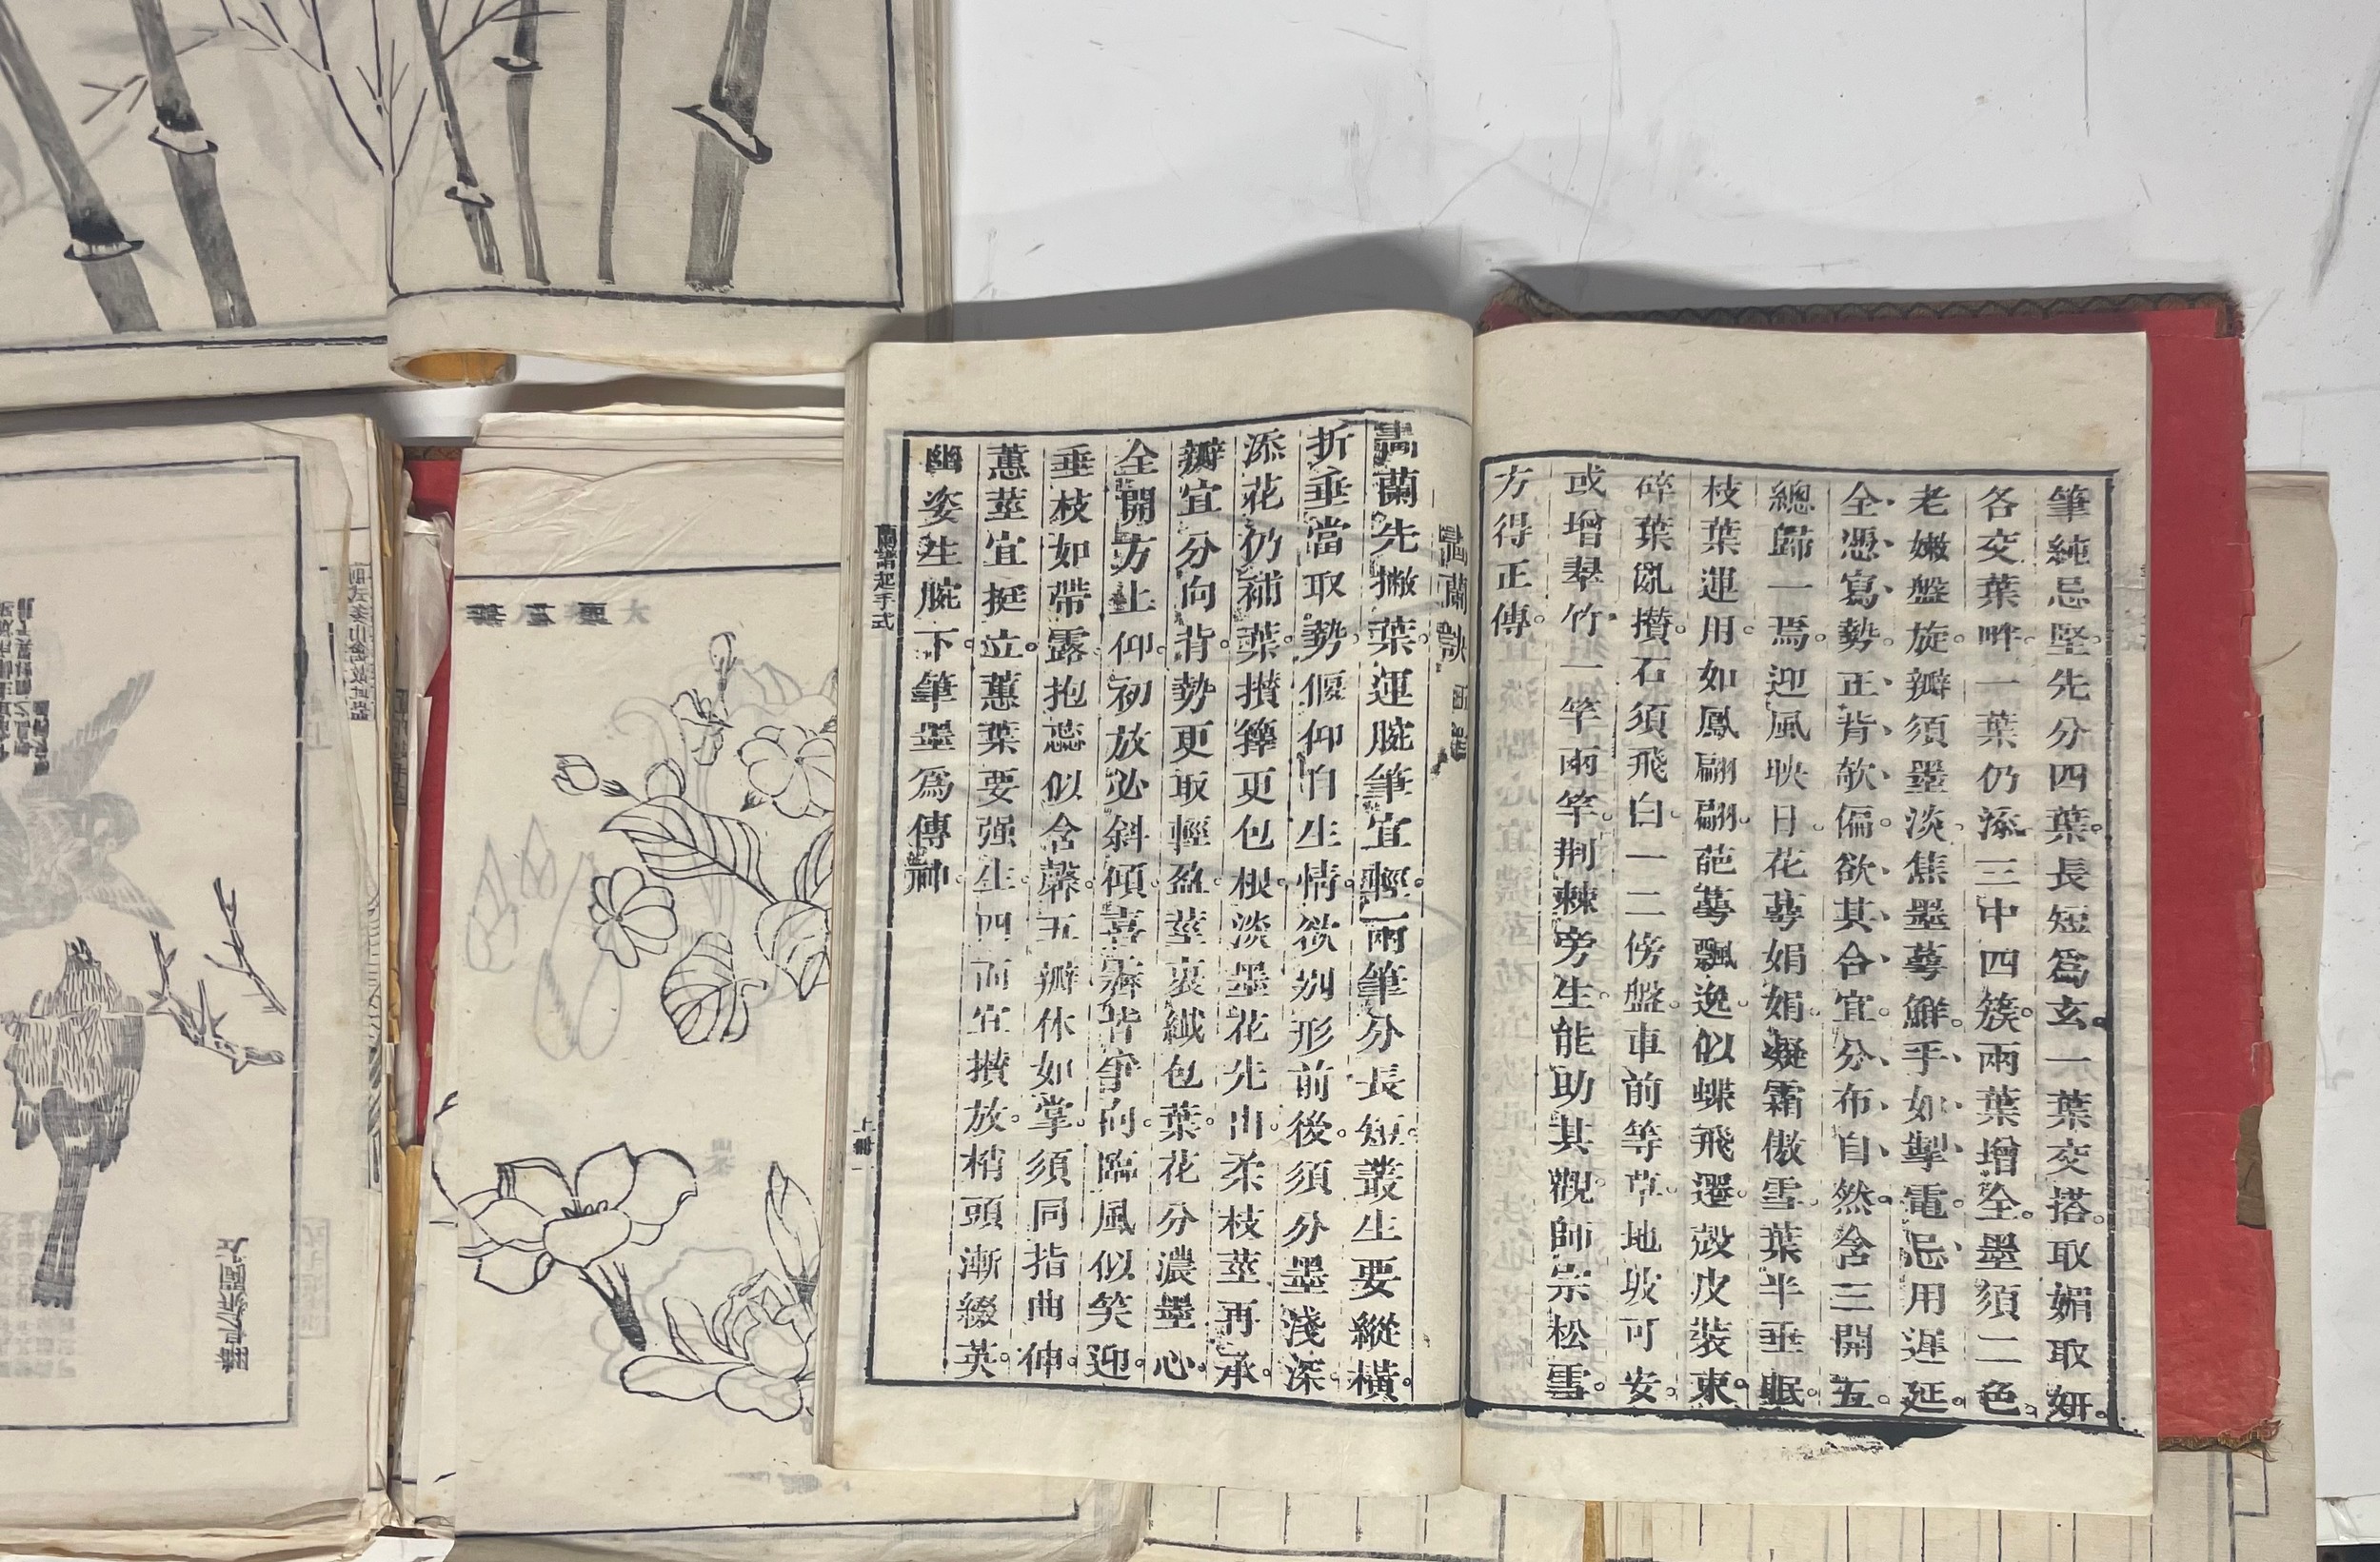 筆純忌堅。先分四葉。長短爲玄。一葉交搭。取媚取妍。
各交葉畔。一葉仍添。三中四簇。兩葉增全。墨須二色。
老嫩盤旋。瓣須墨淡。焦墨蕚鮮。手如掣電。忌用遲延。
全憑寫勢。正背欹偏。欲其合宜。分布自然。含三開五。
總歸一焉。迎風映日。花蕚娟娟。凝霜傲雪。葉半垂眠。
枝葉運用。如鳳翩翩。葩蕚飄逸。似蝶飛遷。殼皮裝束。
碎葉亂攢。石須飛白。一二傍盤。車前等草。地坡可安。
或增翠竹。一竿兩竿。荆棘旁生。能助其觀。師宗松雪。
方得正傳。
畫蘭訣
畫蘭先撇葉。運腕筆宜輕。兩筆分長短。叢生要縱橫。
折垂當取勢。偃仰自生情。欲别形前後。須分墨淺深。
添花仍補葉。攢籜更包根。淡墨花先出。柔枝莖再承。
瓣宜分向背。勢更取輕盈。莖裹纖包葉。花分濃墨心。
全開方上仰。初放必斜傾。喜霽皆爭向。臨風似笑迎。
垂枝如帶露。抱蕊似含馨。五瓣休如掌。須同指曲伸。
蕙莖宜挺立。蕙葉要强生。四面宜攢放。梢頭漸綴英。
幽姿生腕下。筆墨爲傳神。
蘭譜起手式